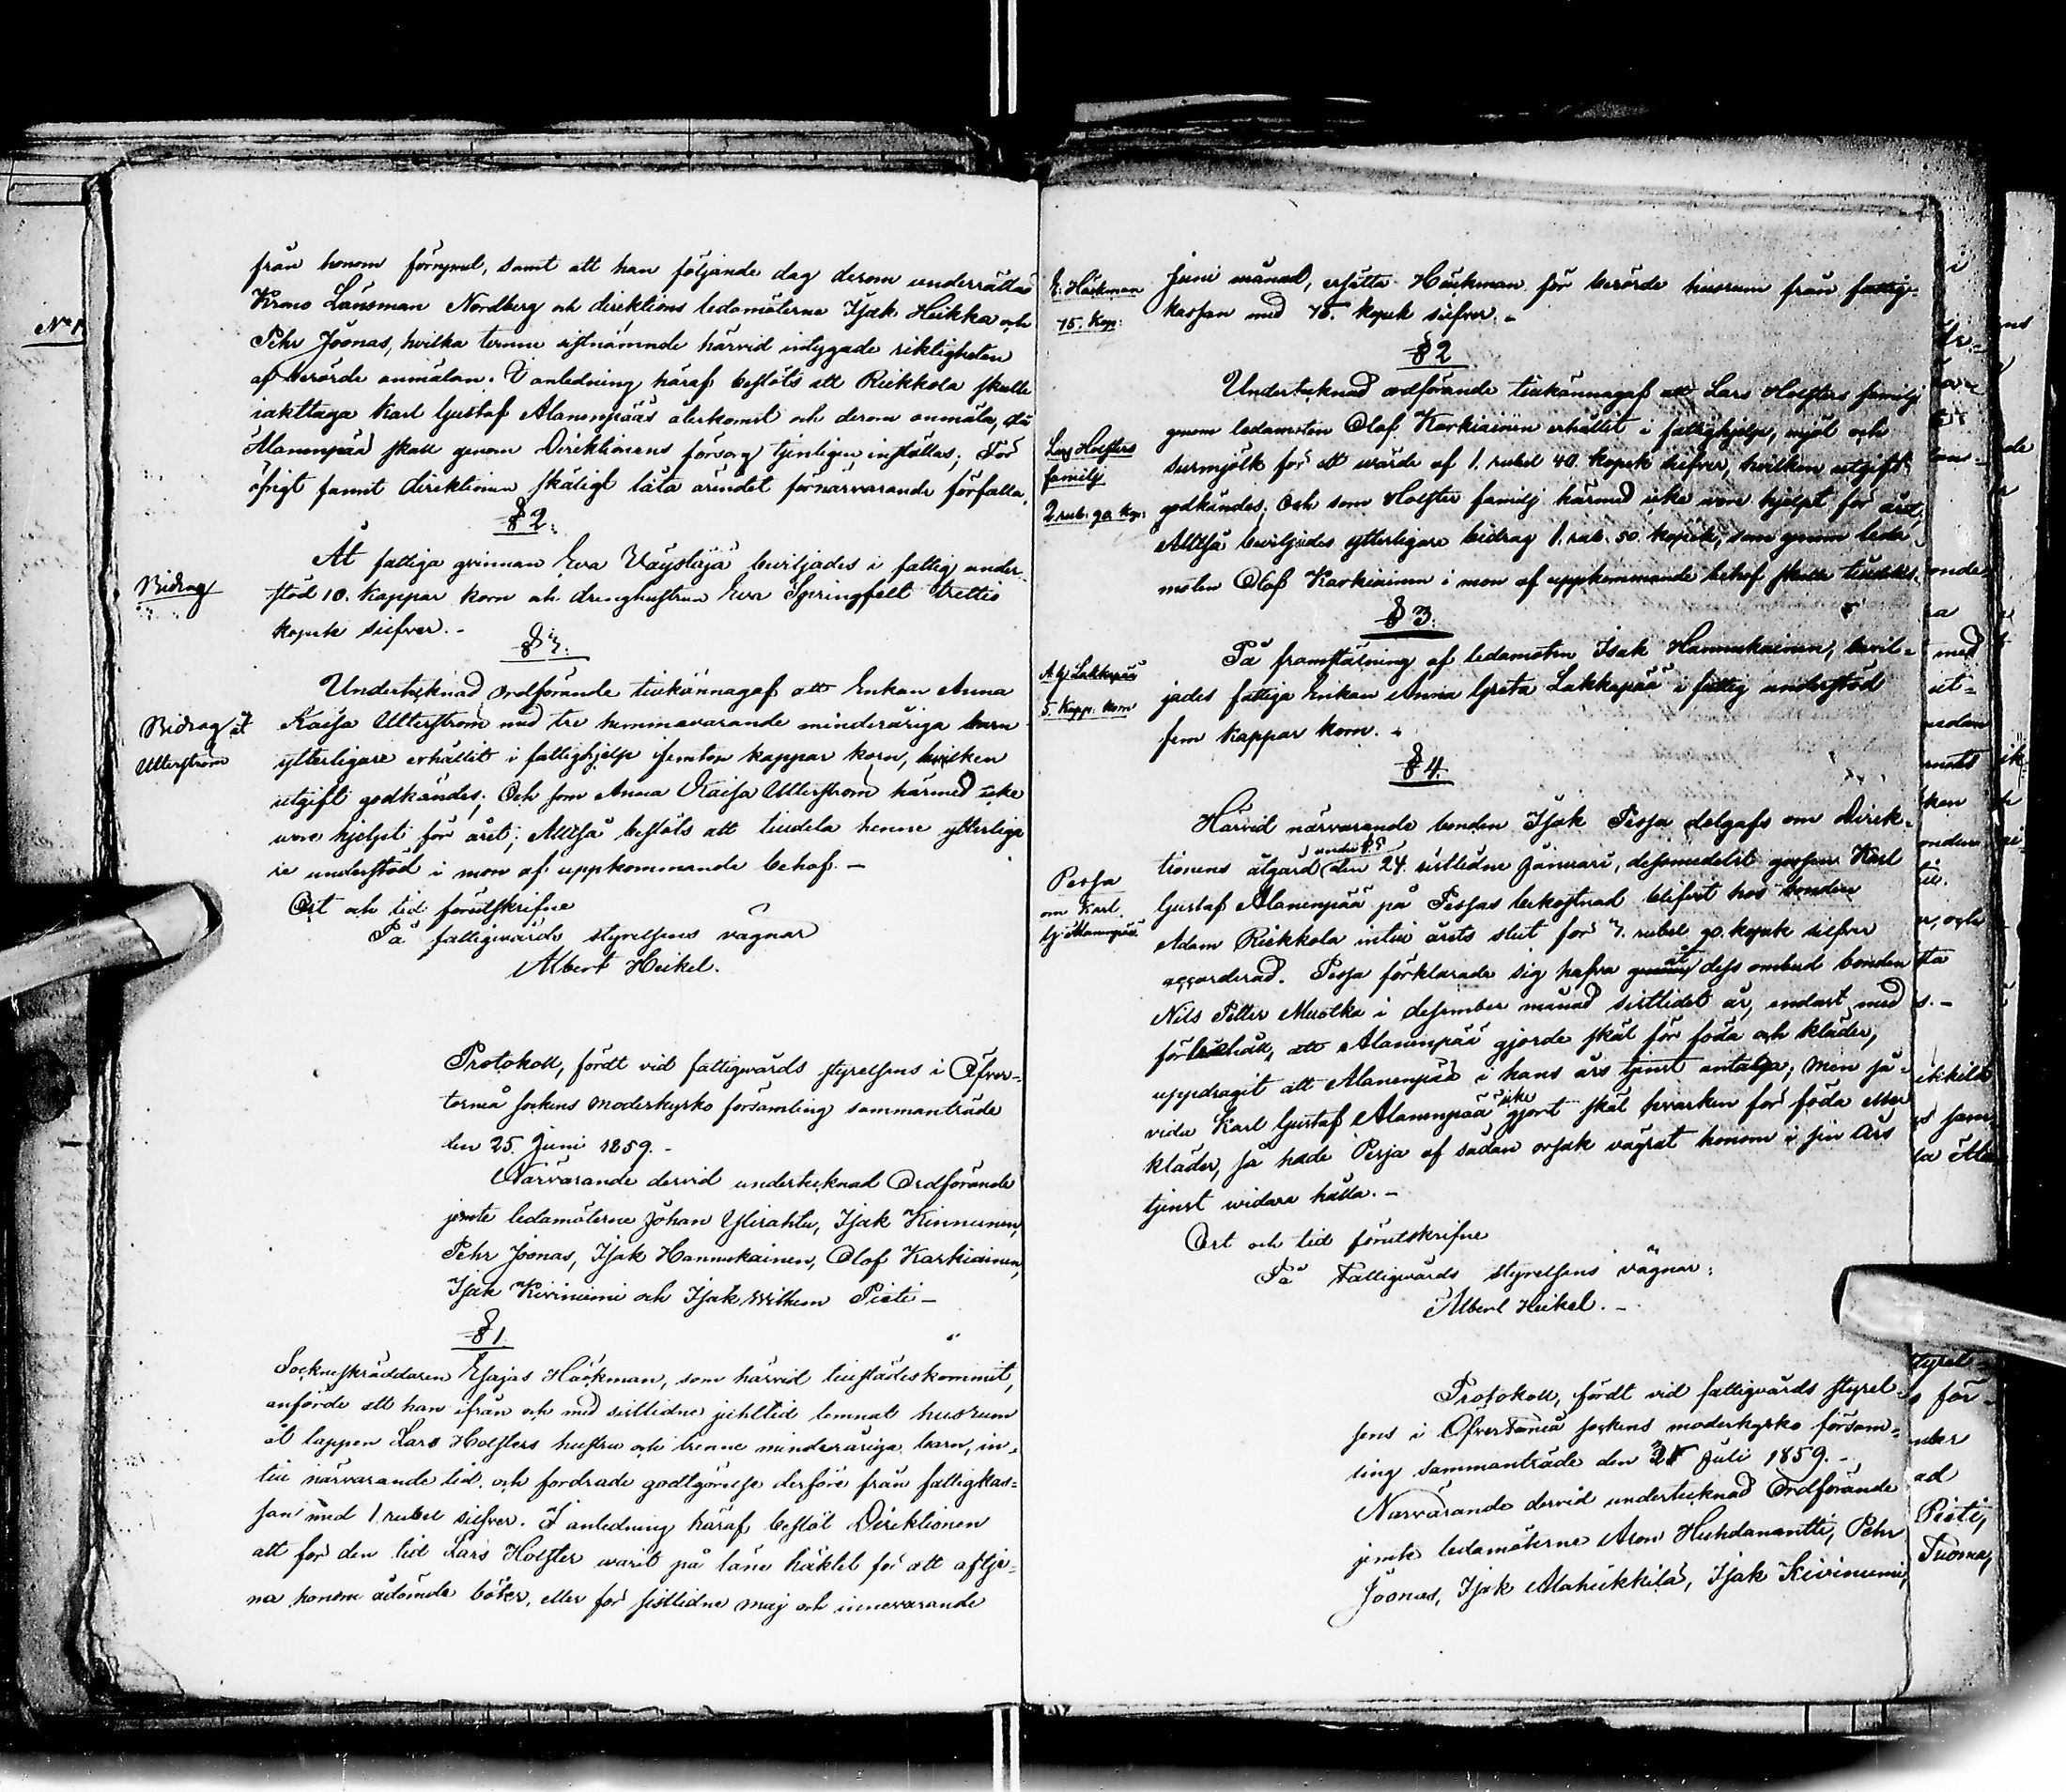 från honom förrymd, samt att han följande dag derom underrättas
Krono Länsman Nordberg och direktions ledamöterne Isak Heikka och
Pehr Joonas, hvilka tvenne sistnämnde härvid intygade riktigheten
af berörde anmälan. I anledning häraf beslöts att Riekkola skulle
iakttaga Karl Gustaf Alanenpääs återkomst och derom anmäla, då
Alanenpää skall genom Direktionens försorg tjenligen inställas; För
öfrigt fannt direktionen skäligt låta ärendet förnärvarande förfalla.
§ 2.
Bidrag
Åt fattiga qvinnan Eva Väystäjä beviljades i fattig under-
stöd 10. kappar korn och drenghustrun Eva Springfelt trettio
kopek silfver. -
§ 3.
Bidrag åt
Utterström
Undertecknad Ordförande tillkännagaf att Enkan Anna
Kaisa Utterström med tre hemmavarande minderåriga barn
ytterligare erhållit i fattighjelp femton kappar korn, hvilken
utgift godkändes; Och som Anna Kaisa Utterström härmed icke
vore hjelpt för året; Alltså beslöts att tilldela henne ytterliga
re understöd i mon af uppkommande behof. -
Ort och tid förutskrifne
På fattigvårds styrelsens vägnar
Albert Heikel.
Protokoll, fördt vid fattigvårds styrelsens i Öfver-
torneå sockens moderkyrko församling sammanträde
den 25. Juni 1859. -
Närvarande dervid undertecknad Ordförande
jemte ledamöterne Johan Ylirahtu, Isak Kinnunen,
Pehr Joonas, Isak Hannukainen, Olof Karkiainen,
Isak Kiviniemi och Isak Wilhem Pieti -
§ 1.
Sockneskräddaren Esajas Häckman, som härvid tillstädeskommit,
anförde att han ifrån och med sistlidne juhltid lemnat husrum
åt lappen Lars Holsters hustru och trenne minderåriga barn, in-
till närvarande tid, och fordrade godtgörelse derföre från fattigkas-
san med 1 rubel silfver. I anledning häraf beslöt Direktionen
att för den tid Lars Holster warit på läne häktet för att aftje-
na honom ådömde böter, eller för sistlidne maj och innevarande
E. Häckman
75. Kop:
Juni månad, ersätta Häckman för berörde husrum från fattig-
kassan med 75. kopek silfver. -
§ 2
Lars Holsters
familj
2 rub. 90 Kop:
Undertecknad ordförande tillkännagaf att Lars Holsters familj
genom ledamoten Olof Karkiainen erhållit i fattighjelp, mjöl och
surmjölk för ett wärde af 1. rubel 40. kopek silfver, hvilken utgift
godkändes; Och som Holster familj härmed icke vore hjelpt för året,
Alltså beviljades ytterligare bidrag 1. rub. 50. kopek, som genom leda-
moten Olof Karkiainen i mon af uppkommande behof skulle tilldelas.
§ 3.
A G Lakkapää
5. Kapp. korn
På framställning af ledamoten Isak Hannukainen, bevil-
jades fattiga Enkan Anna Greta Lakkapää i fattig understöd
fem kappar korn. -
§ 4.
Pessa
om Karl
G. Alanenpää
Härvid närvarande bonden Isak Pessa delgafs om Direk-
tionens åtgärd under § 5 den 24. sistledne Januari, desmedelst gossen Karl
Gustaf Alanenpää på Pessas bekostnad blifvit hos bonden
Adam Riekkola intill årets slut för 7. rubel 90. kopek silfver
accorderad. Pessa förklarade sig hafva genom åt dess ombud bonden
Nils Petter Muotka i desember månad sistlidet år, endast med
förbehåll, att Alanenpää gjorde skäl för föda och kläder,
uppdragit att Alanenpää i hans års tjenst antaga; Men så-
vida Karl Gustaf Alanenpää icke gjort skäl hvarken för föda eller
kläder, så hade Pessa af sådan orsak vägrat honom i sin Års
tjenst widare hålla. -
Ort och tid förutskrifne
På Fattigvårds styrelsens vägnar:
Albert Heikel. -
Protokoll, fördt vid fattigvårds styrel-
sens i Öfvertorneå sockens moderkyrko försam-
ling sammanträde den Juli 1859. -
Närvarande dervid undertecknad Ordförande
jemte ledamöterne Aron Huhdanantti, Pehr
Joonas, Isak Alaheikkilä, Isak Kiviniemi,